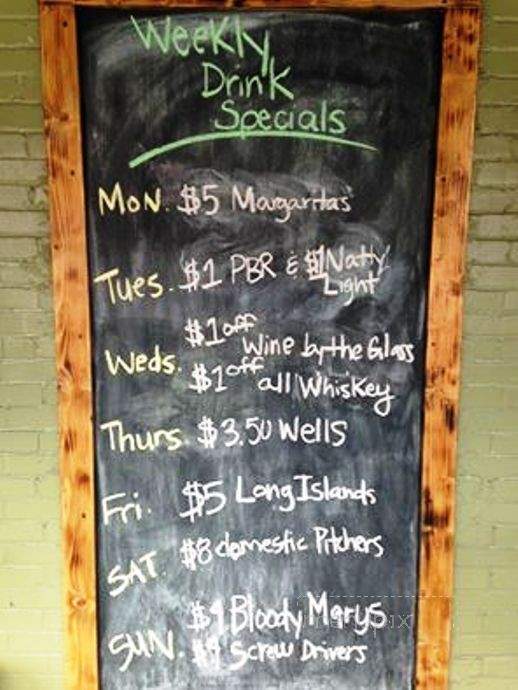 Weekly
Drink
Specials
MON. $5 Margaritas
Tues. $1 PBR & $1 Natty
Light
Weds. $1 off Wine by the Glass
$1 off all Whiskey
Thurs. $3.50 Wells
Fri. $5 Long Islands
SAT. $8 domestic Pitchers
SUN. $4 Bloody Marys
$4 Screw Drivers